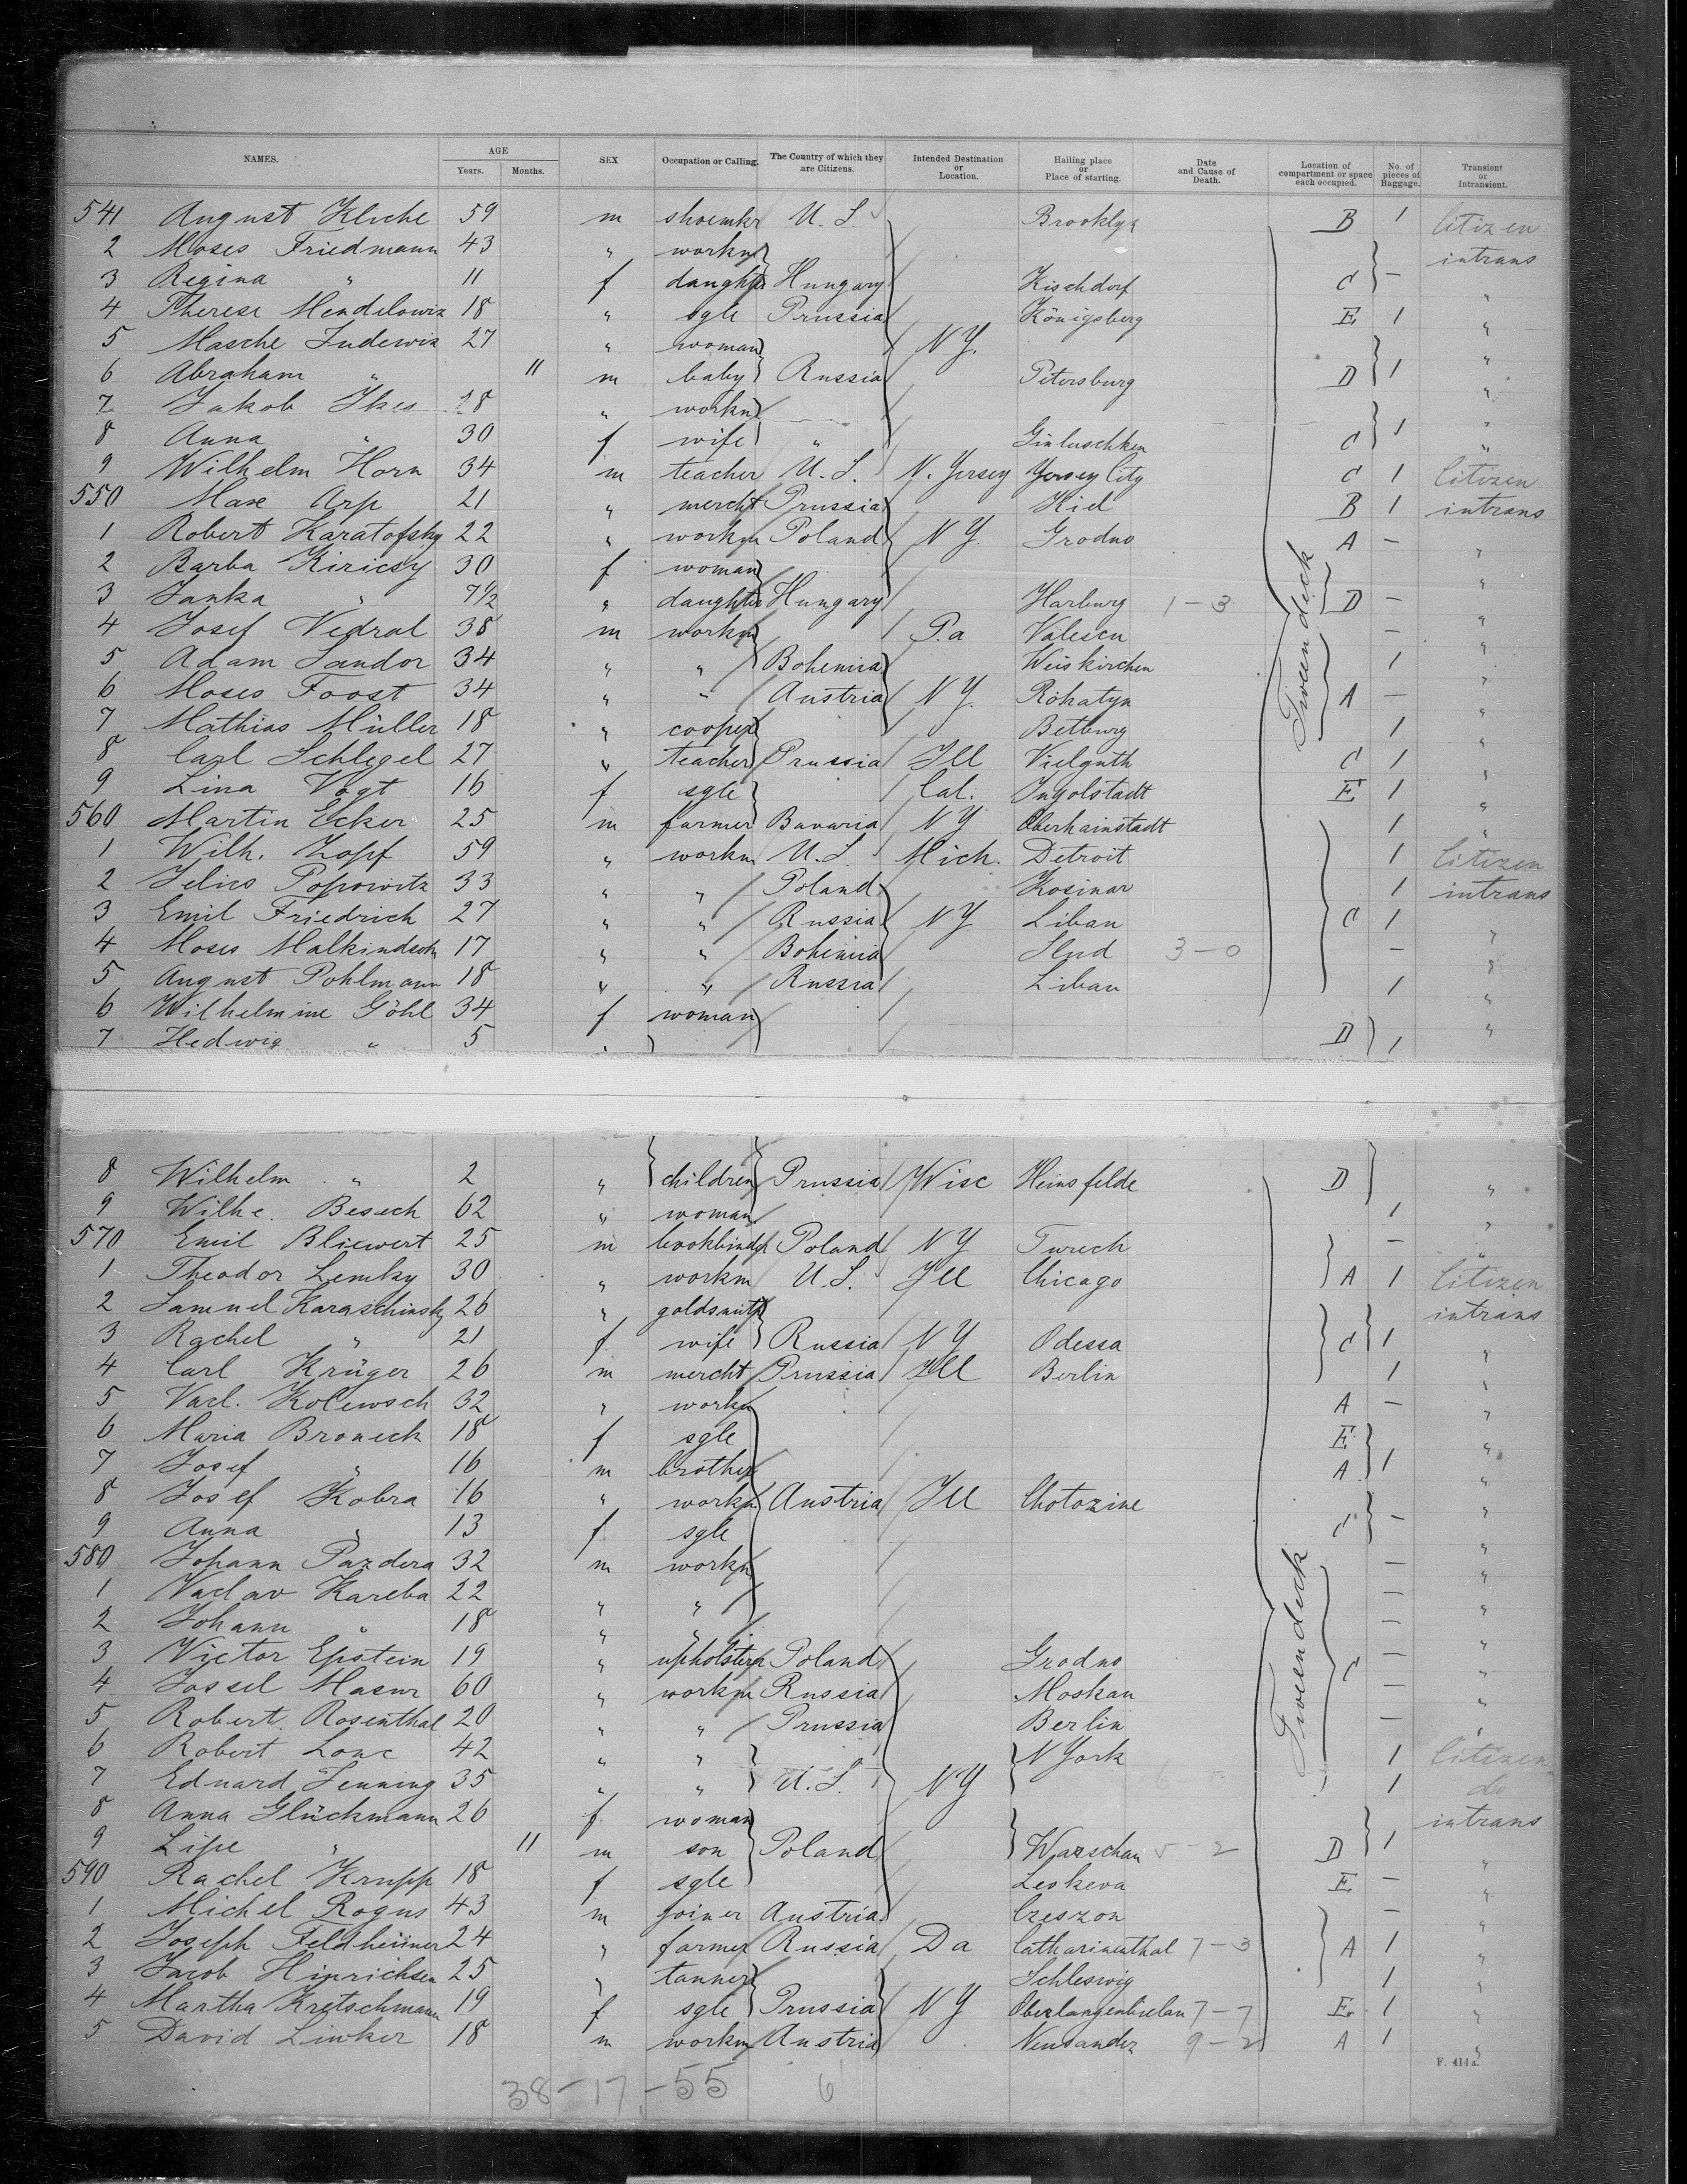 NAMES. AGE Years. Months. SEX Occupation or Calling. The Country of which they are Citizens. Intended Destination or Location. Hailing place or Place of starting. Date and Cause of Death. Location of compartment or space each occupied. No. of pieces of Baggage. Transient or Intransient.
541 August Kliche 59 m shoemkr U.S. Brooklyn B 1 Citizen
2 Moses Friedmann 43 " workm intrans
3 Regina " 11 f daughter Hungary Kischdorf C — "
4 Therese Mendelowiz 18 " sgle Prussia Königsberg E 1 "
5 Masche Judewiz 27 " woman N.Y. "
6 Abraham " 11 m baby Russia Petersburg D 1 "
7 Jakob Ikes 28 " workm "
8 Anna " 30 f wife " C 1 "
9 Wilhelm Horn 34 m teacher U.S. N. Jersey Jersey City C 1 Citizen
550 Max Arp 21 " mercht Prussia Kiel B 1 intrans
1 Robert Karatofsky 22 " workm Poland NY Grodno A — "
2 Barba Kiricsy 30 f woman "
3 Janka " 7½ " daughter Hungary Harburg 1-3 D — "
4 Josef Vedral 38 m workm P.a Valescu — "
5 Adam Sandor 34 " " Bohemia Weiskirchen 1 "
6 Moses Foost 34 " " Austria NY. Rohatyn A — "
7 Mathias Müller 18 " cooper Betburg 1 "
8 Carl Schlegel 27 " teacher Prussia Ill Vielguth C 1 "
9 Lina Vogt 16 f sgle Cal. Ingolstadt E 1 "
560 Martin Ecker 25 m farmer Bavaria NY Oberhainstadt 1 "
1 Wilh. Zopf 59 " workm U.S. Mich. Detroit 1 Citizen
2 Popowitz 33 " " Poland Kosinar 1 intrans
3 Emil Friedrich 27 " " Russia NY Libau C 1 "
4 Moses Malkindsohn 17 " " Bohemia 3-0 — "
5 August Pohlmann 18 " " Russia Libau 1 "
6 Wilhelmine Göhl 34 f woman "
7 Hedwig " 5 " D 1
Tweendeck
8 Wilhelm " 2 " children Prussia Wisc Heinsfelde D "
9 Wilhe. Besech 62 " woman 1 "
570 Emil Bliewert 25 m bookbinder Poland NY Tureck — "
1 Theodor Lemky 30 " workm U.S. Ill Chicago A 1 Citizen
2 Samuel Karaschinsky 26 " goldsmith intrans
3 Rachel " 21 f wife Russia NY Odessa C 1 "
4 Carl Krüger 26 m mercht Prussia Ill Berlin 1 "
5 Vacl. Kolewsch 32 " workm A — "
6 Maria Broneck 18 f sgle E "
7 Josef " 16 m brother A 1 "
8 Josef Kobra 16 " workm Austria Ill Chotozine "
9 Anna " 13 f sgle C — "
580 Johann Pazdera 32 m workm — "
1 Vaclav Kareba 22 " " — "
2 Johann " 18 " " — "
3 Victor Epstein 19 " upholsterer Poland Grodno — "
4 Jossel Masur 60 " workm Russia Moskau C — "
5 Robert Rosenthal 20 " " Prussia Berlin — "
6 Robert Lonc 42 " " N York 1 Citizen
7 Eduard Jenning 35 " " U.S. NY 1 do
8 Anna Glückmann 26 f woman intrans
9 Lipe " 11 m son Poland Warschau 5-2 D 1 "
590 Rachel Krupp 18 f sgle Leokeva E — "
1 Michel Rogus 43 m joiner Austria Creszon — "
2 Joseph Feldheimer 24 " farmer Russia Da Catharinenthal 7-3 A 1 "
3 Jacob Hinrichsen 25 " tanner Schleswig 1 "
4 Martha Kretschmann 19 f sgle Prussia NY Oberlangenbielau 7-7 E 1 "
5 David Linker 18 m workm Austria Neusandez 9-2 A 1 "
Tweendeck
F. 411a.
38-17-55 6